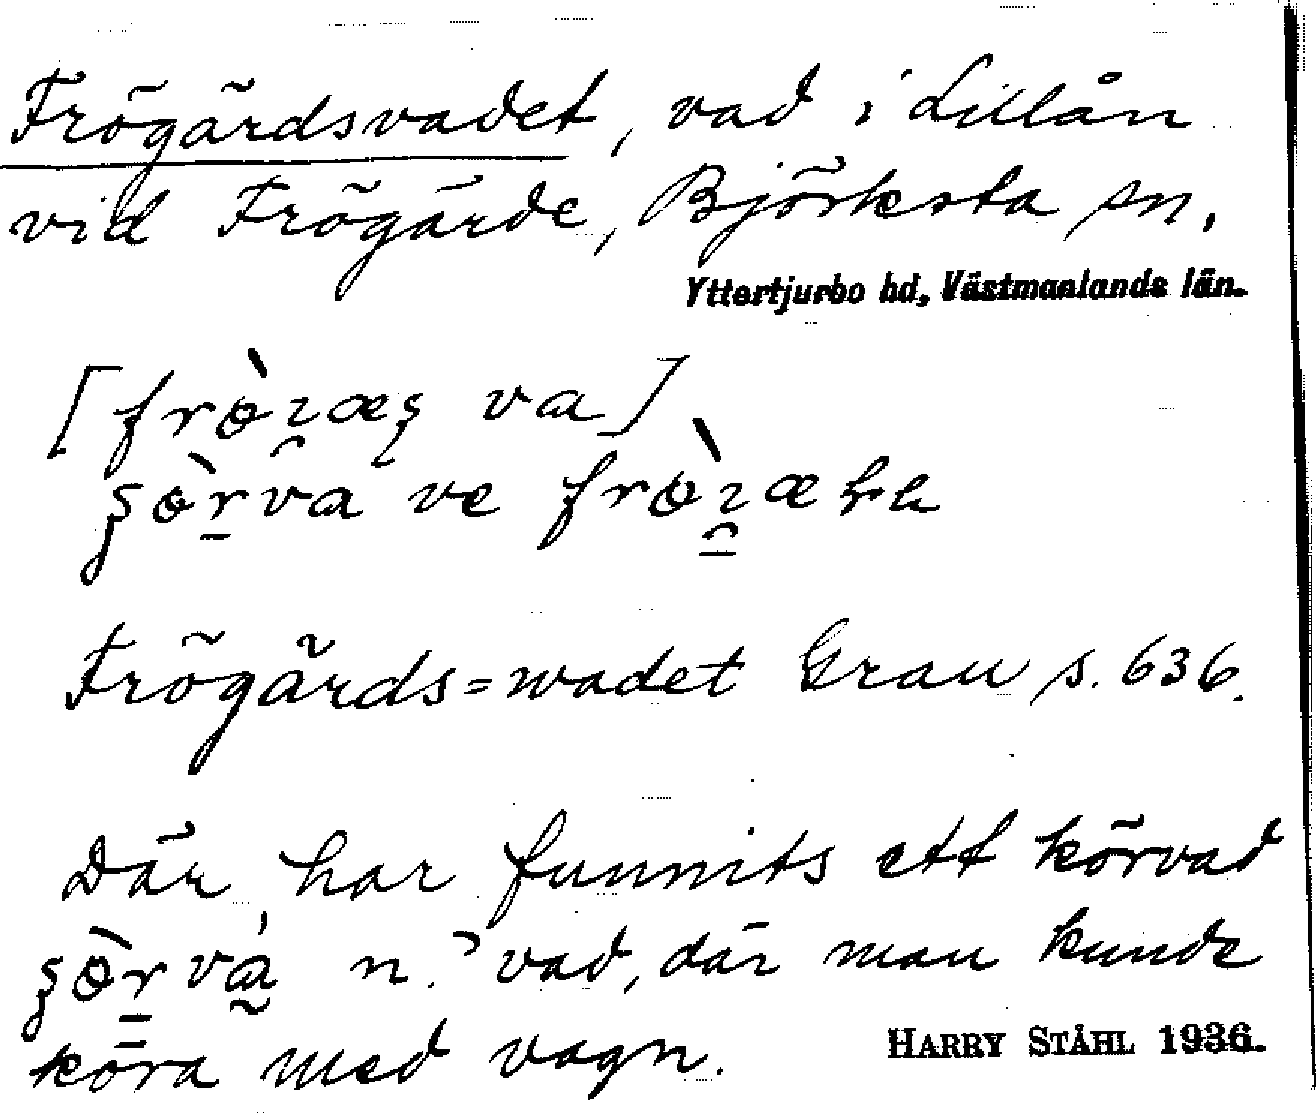 Frögärdsvadet, vad i Lillån
vid Frögärde, Björksta sn.
Yttertjurbo hd, Västmanlands län.
va]
ve
Frögärds=wadet Grau s. 636.
Där har funnits ett körvad
n. ’vad, där man kunde
köra med vagn.
HARRY STÅHL 1936.